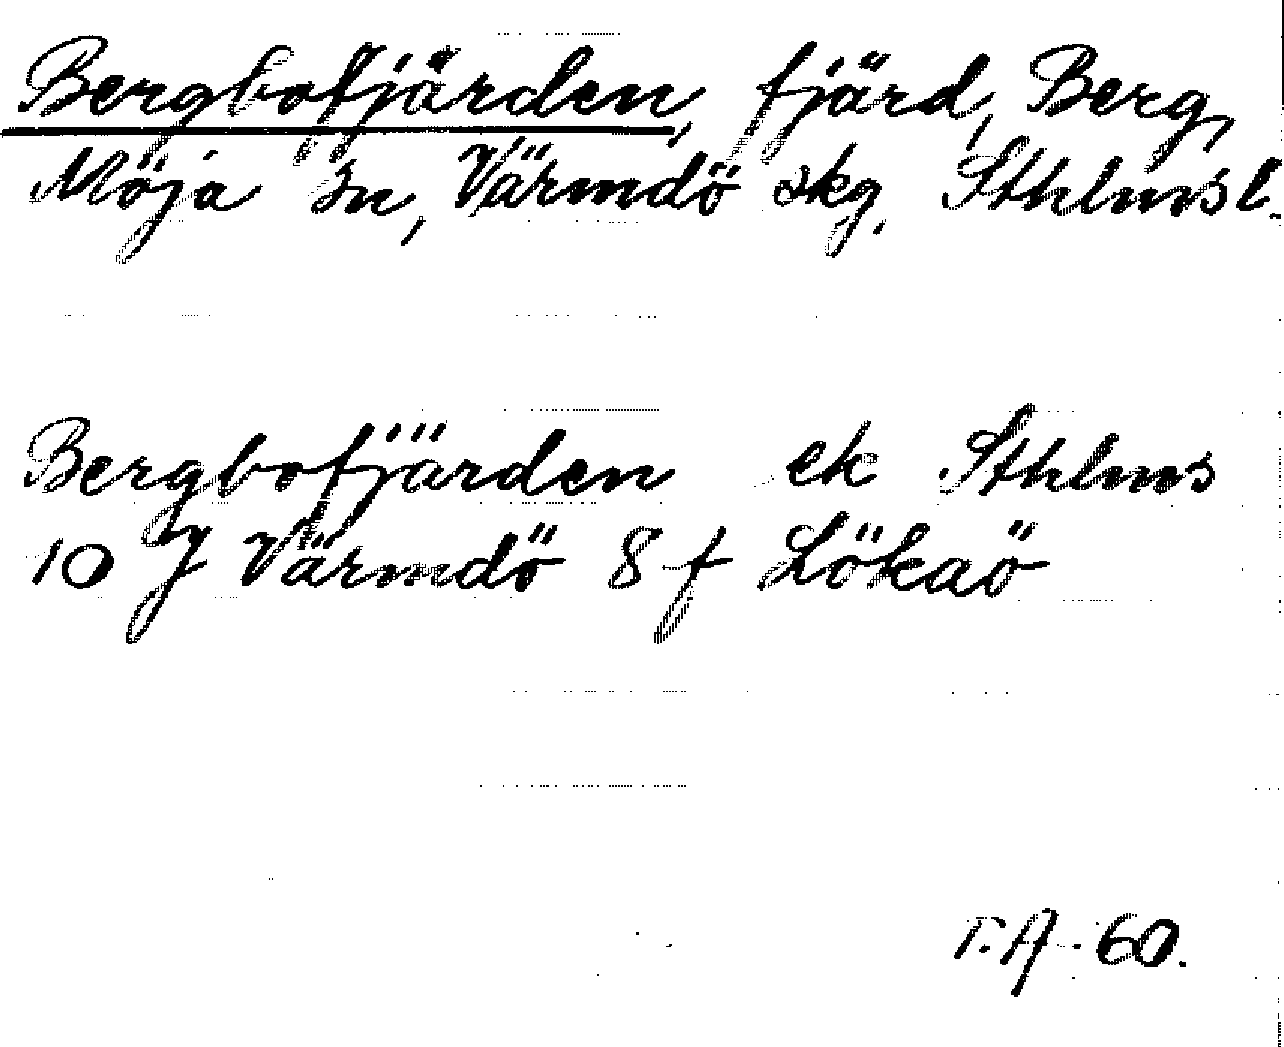 Bergbofjärden, fjärd, Berg,
Möja sn, Värmdö skg, Sthlmsl.
Bergbofjärden ek Sthlms
10 J Värmdö 8 f Lökaö
T.A. 60.